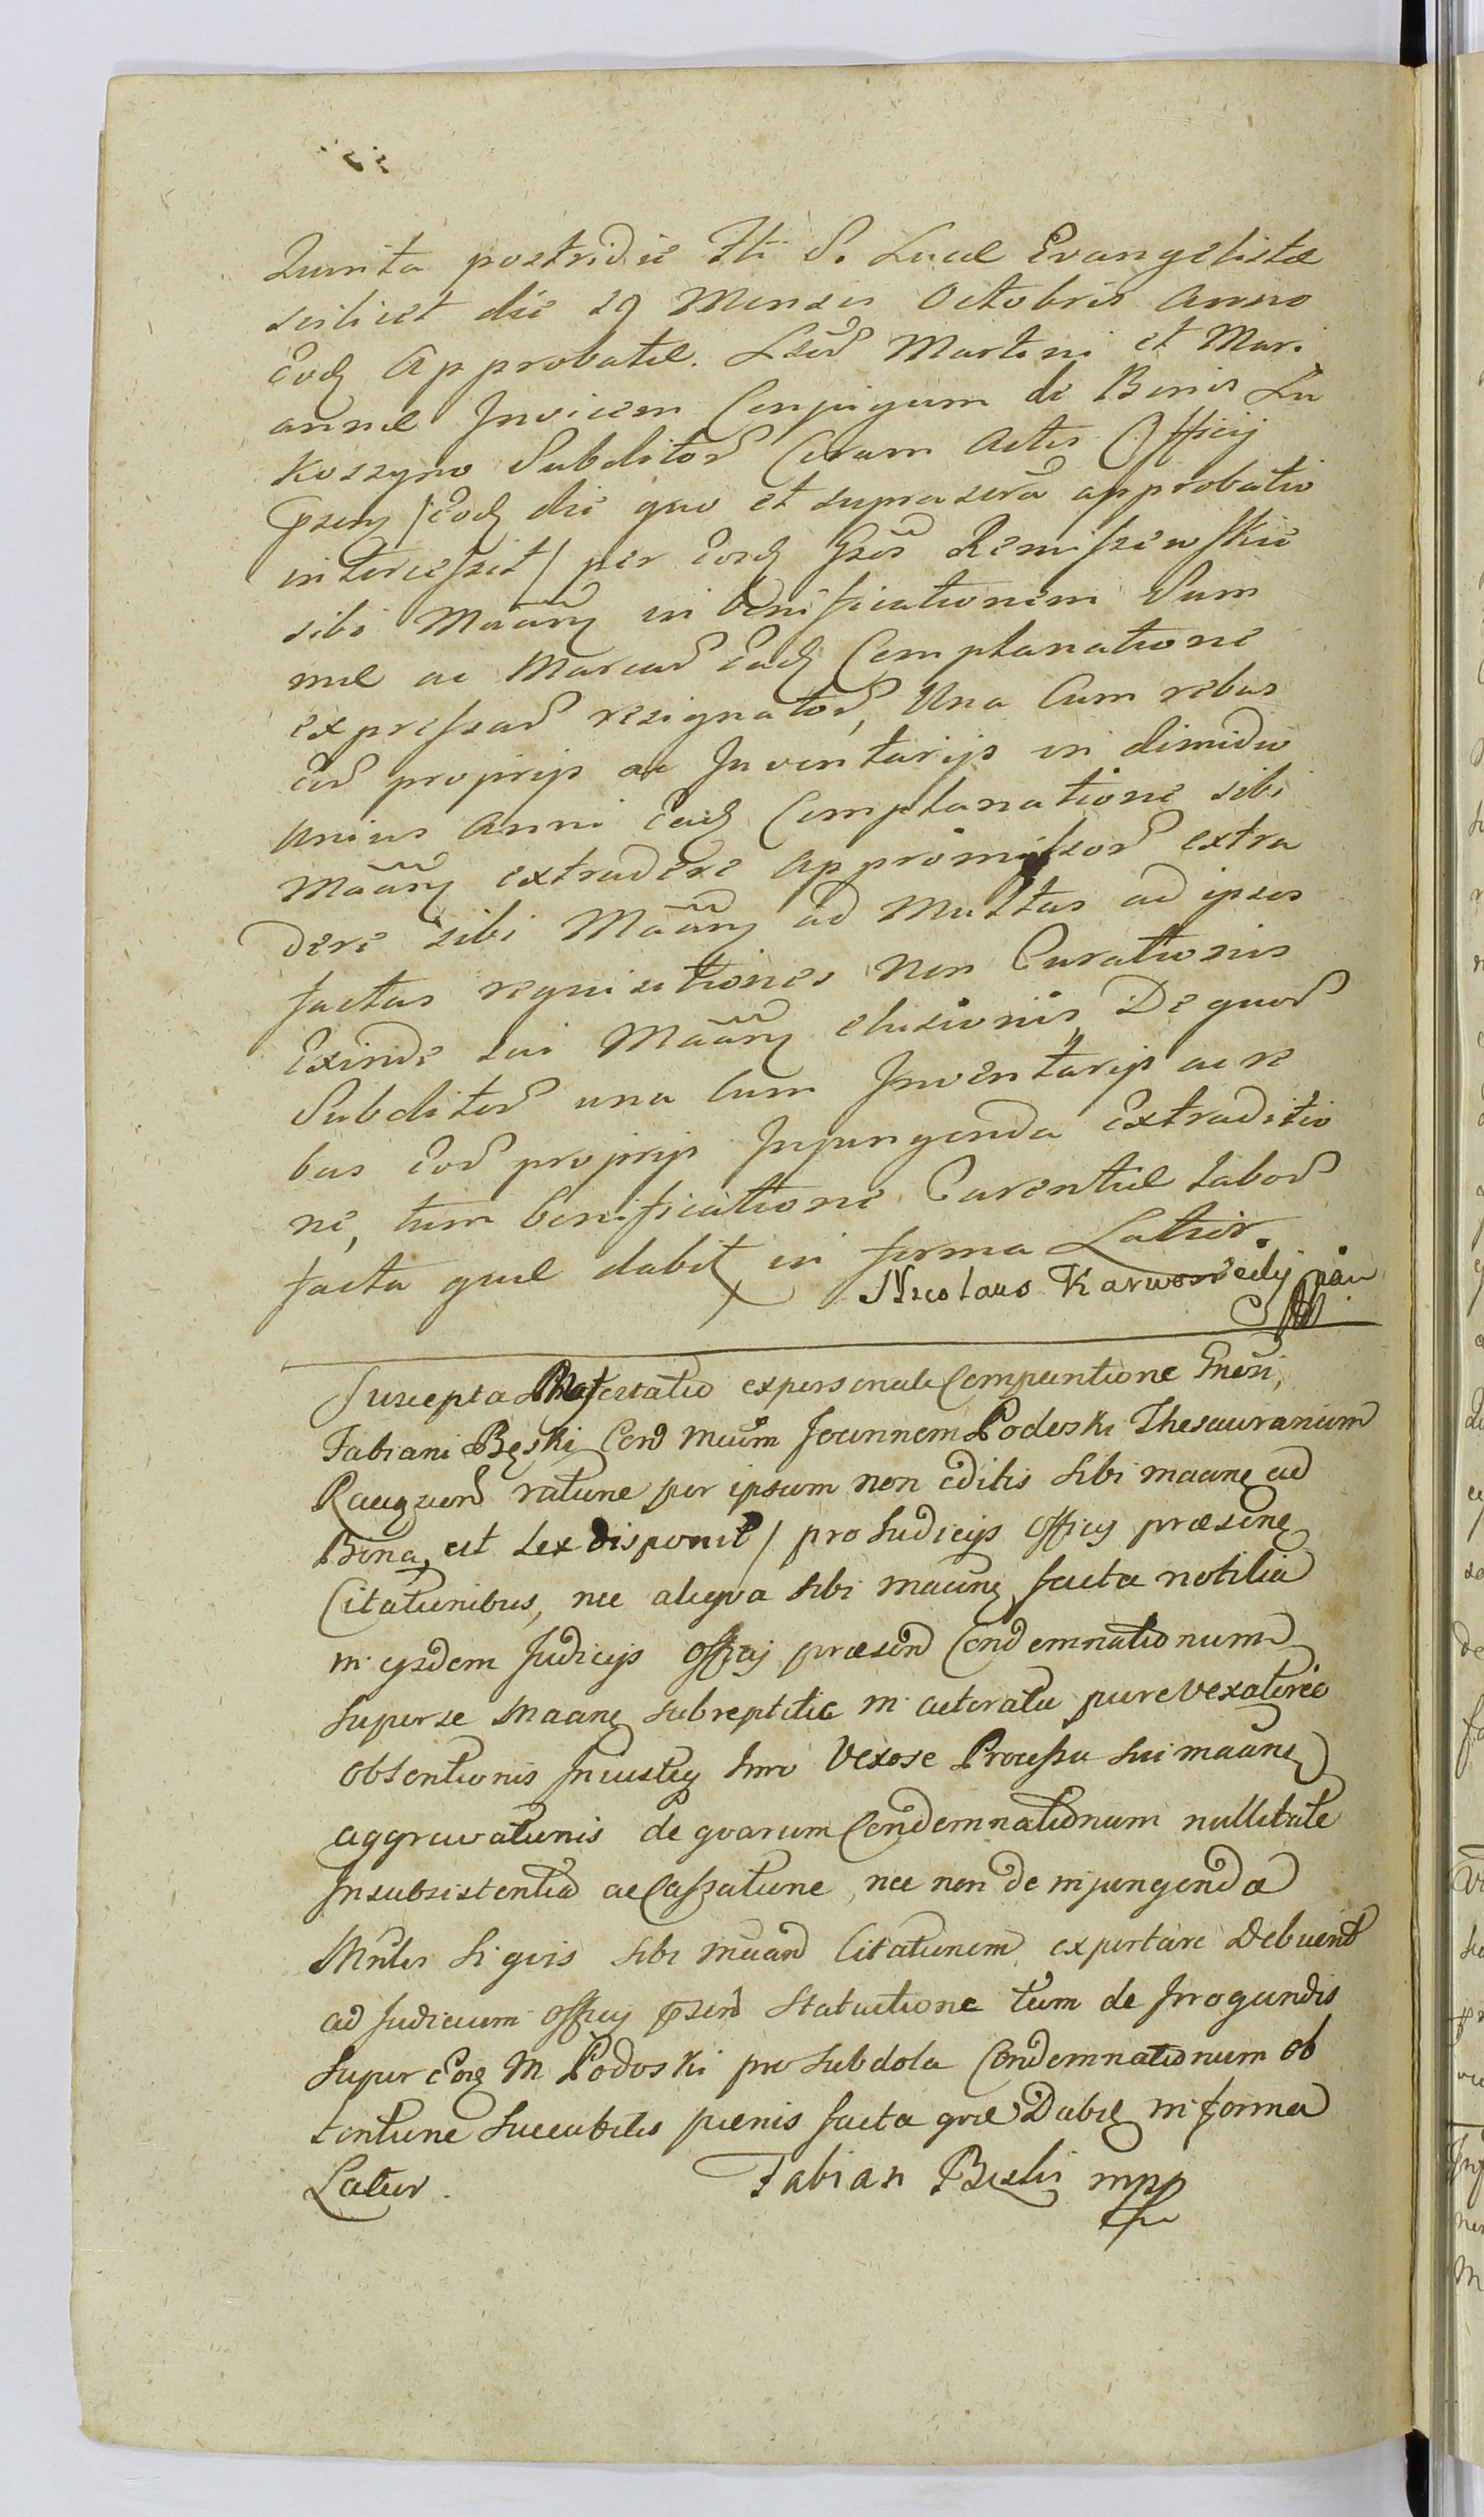 Quinta postridie Fti S. Lucæ Evangelistæ
scilicet die 19 Mensis Octobris Anno
Eodq Approbatæ. Martini et Mari
annæ Invicem Conjugum de Bonis Lu
koszyno Subditor Coram Actis Officij
psenq / Eodq die quo et supra approbatio
intercessit / per Eosdq Remiszewskie
sibi Maãnq in bonificationem Sum
mæ ac Marcar Eadq Complanatione
expressar resignator, Una Cum rebus
Eor proprijs ac Inventarijs in dimidio
Unius Anni Eadq Complanatione sibi
Maãnq extradere appromissor extra
dere sibi Maãnq ad Multas ad ipsos
factas requisitiones non Curationis
Exinde sui Maãnq elusionis De quor
Subditor una Cum Inventarijs ac re
bus Eor proprijs Injungenda Extraditio
ne, tum bonificatione Carentiæ labor
facta quæ dabit in forma Latior.
Nicolaus Karwosiecki
Suscepta Mafestatio ex personali Comparitione Gnesi,
Fabiani Bęski Cord Mcum Joannem Podoski Thesaurarium
Raciązen ratione per ipsum non editis sibi maanq ad
Bona, ut Lex disponit / pro Judicijs Officij præsenq
Citationibus, nec aliqva sibi maanq facta notitia
in ijsdem Judicijs Officij præsen Condemnationum
super se Maanq subreptitie in actoratu pure vexatorie
obtentionis Iniusteq imo Vexose Processu sui maanq
aggravationis de qvarum Condemnationum nullitate
Insubsistentia ac Cassatione, nec non de injungenda
Mnlis si qvis sibi Maan Citationem exportare Debuerit
ad Judicium Officij psen Statuitione tum de Irrogandis
super Eoq M Podoski pro subdola Condemnationum ob
tentione Succubitis pœnis facta qvæ Dabit in forma
Latior. Fabian Bęski mpp